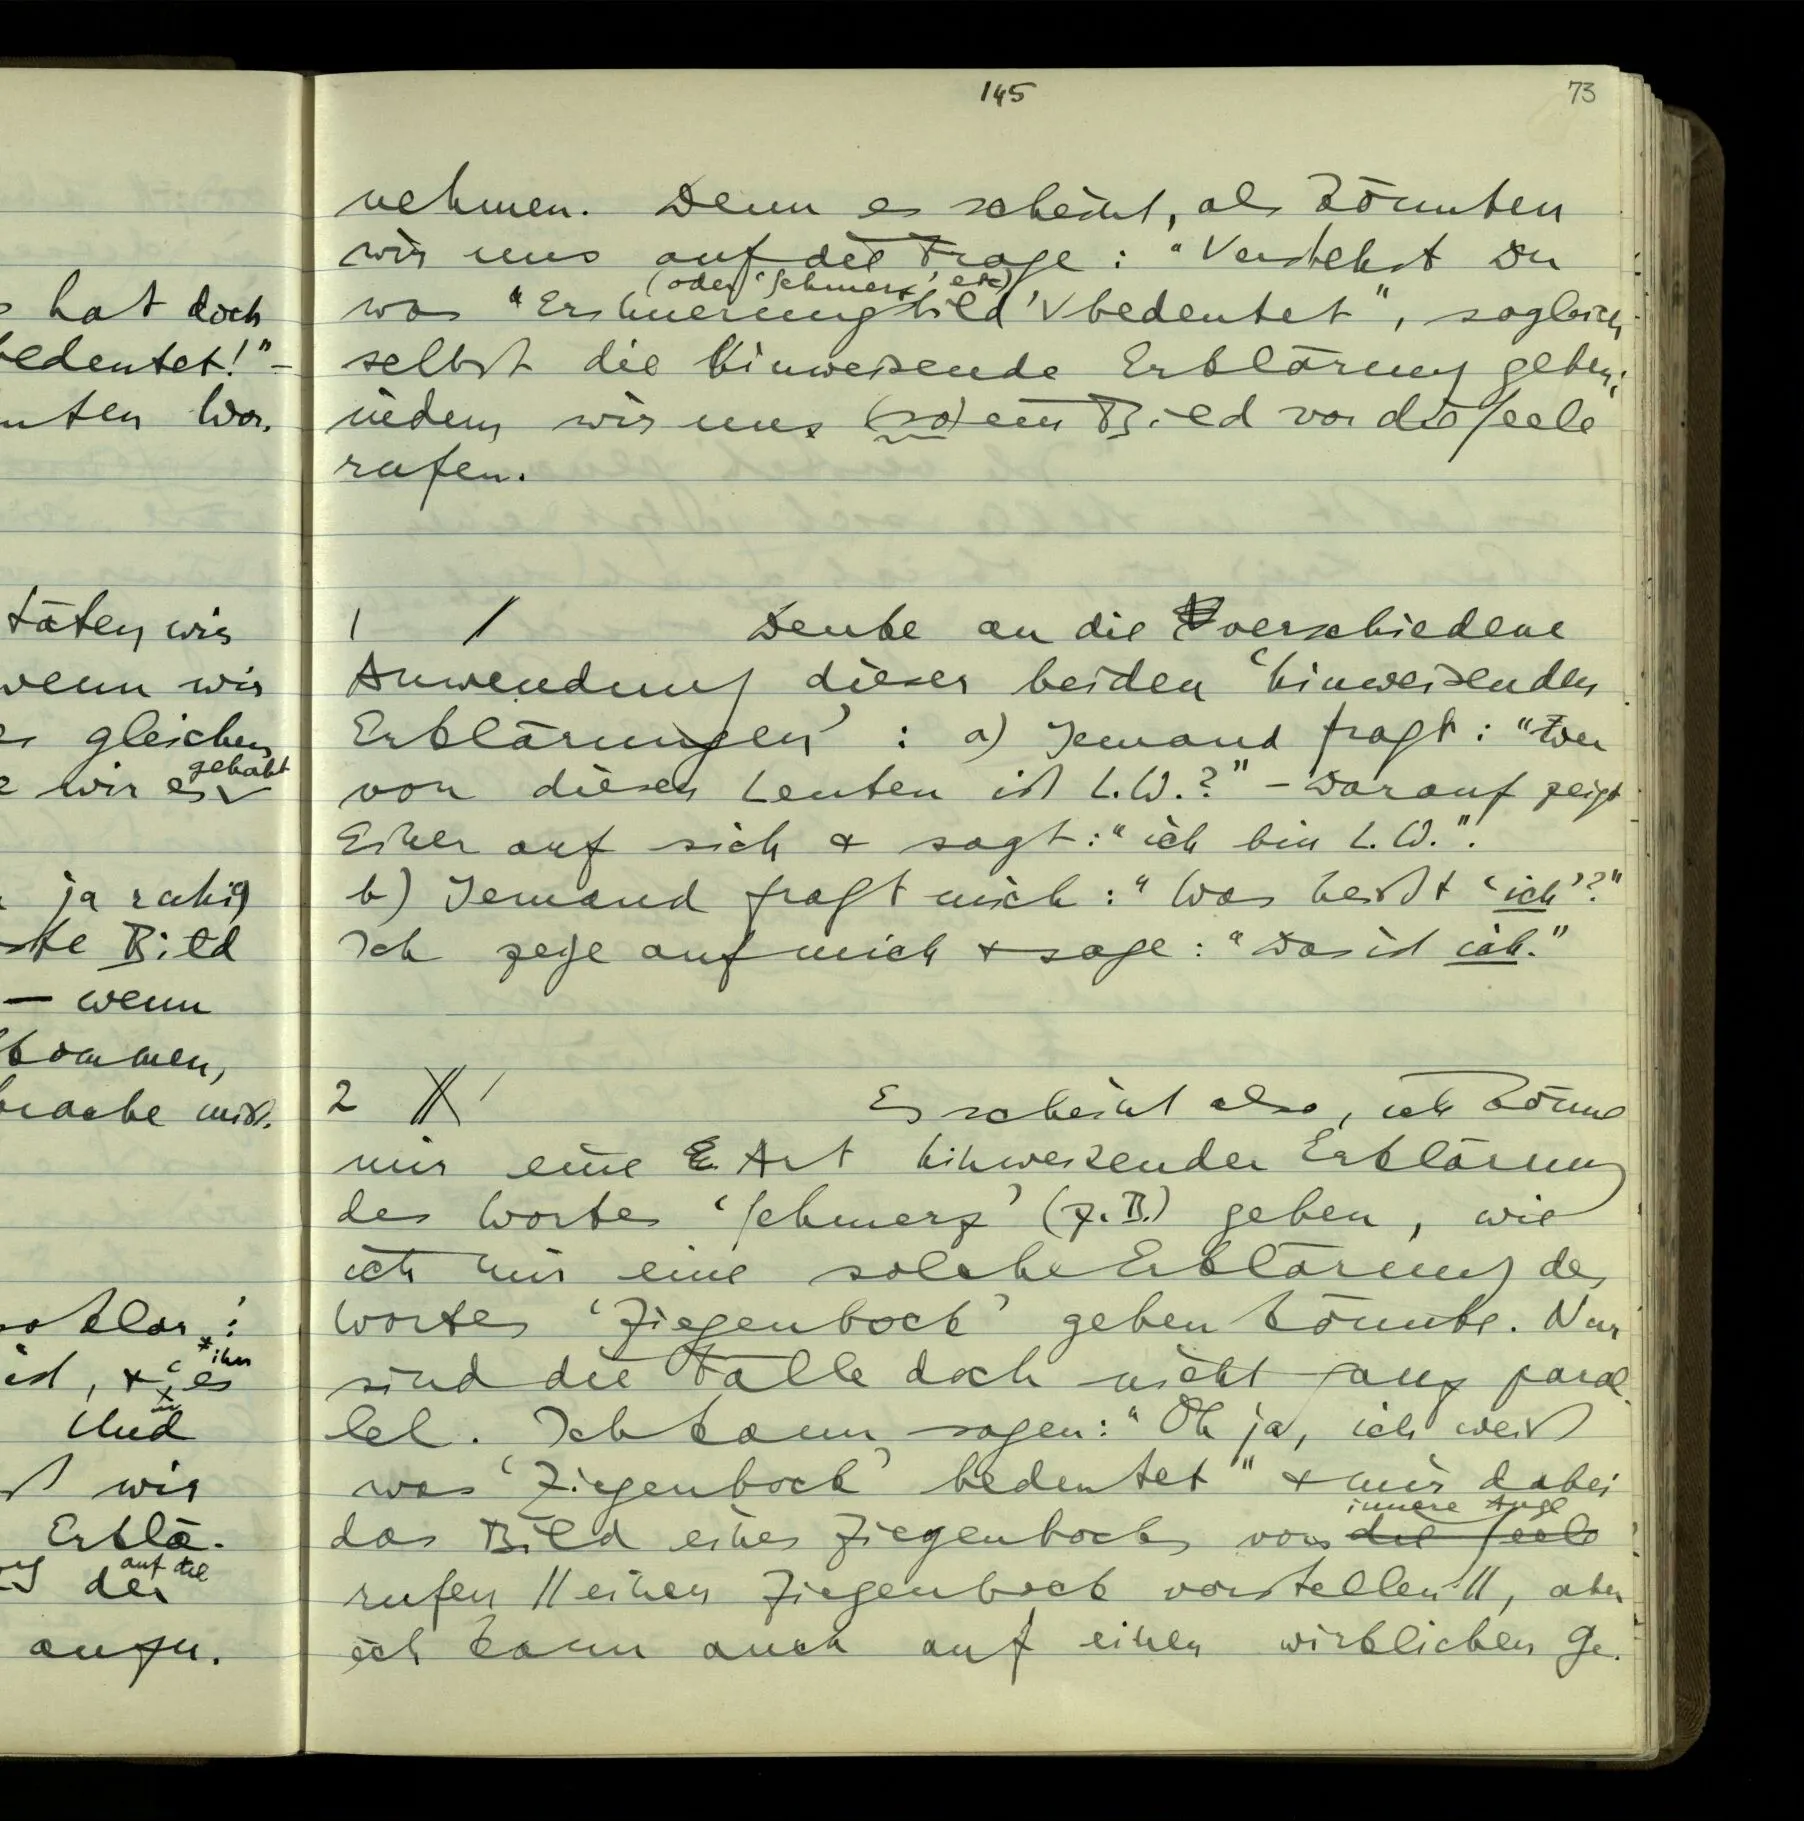 145
73
s hat doch
bedeutet!" –
nten Wor-
täten, wir
wenn wir
es gleichen
gehabt
e wir es ∨
ja ruhig
ste Bild
– wenn
kommen,
brache mir.
so klar:
* ihn
ist, & 'es
Und
ß wir
Erklä-
auf die
der
anzu-
nehmen. Denn es scheint, als könnten
wir uns auf die Frage: "Verstehst Du
(oder 'Schmerz', etc)
was 'Erinnerungsbild' ∨ bedeutet", sogleich
selbst die hinweisende Erklärung geben;
indem wir uns (so) ein Bild vor die Seele
rufen.
1 / Denke an die verschiedene
Anwendung dieser beiden 'hinweisenden
Erklärungen': a) Jemand fragt: "Wer
von diesen Leuten ist L.W.?" – Darauf zeigt
Einer auf sich & sagt: "ich bin L.W.".
b) Jemand fragt mich: "Was heißt 'ich'?"
Ich zeige auf mich & sage: "Das ist ich."
2 X / Es scheint also, ich könne
mir eine E Art hinweisender Erklärung
des Wortes 'Schmerz' (z.B.) geben, wie
ich mir eine solche Erklärung des
Wortes 'Ziegenbock' geben könnte. Nur
sind die Fälle doch nicht ganz paral-
lel. Ich kann sagen: "Oh ja, ich weiß
was 'Ziegenbock' bedeutet" & mir dabei
innere Auge
das Bild eines Ziegenbocks vor die Seele
rufen // einen Ziegenbock vorstellen //, aber
ich kann auch auf einen wirklichen Ge-